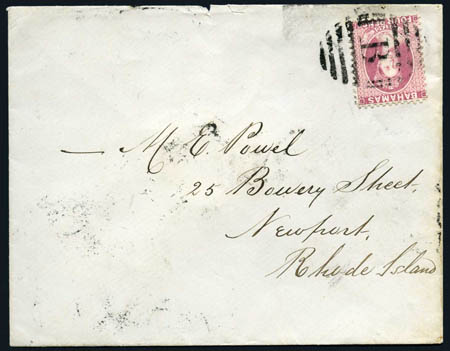 BAHAMAS
M E. Powel
25 Bowery Street,
Newport,
Rhode Island